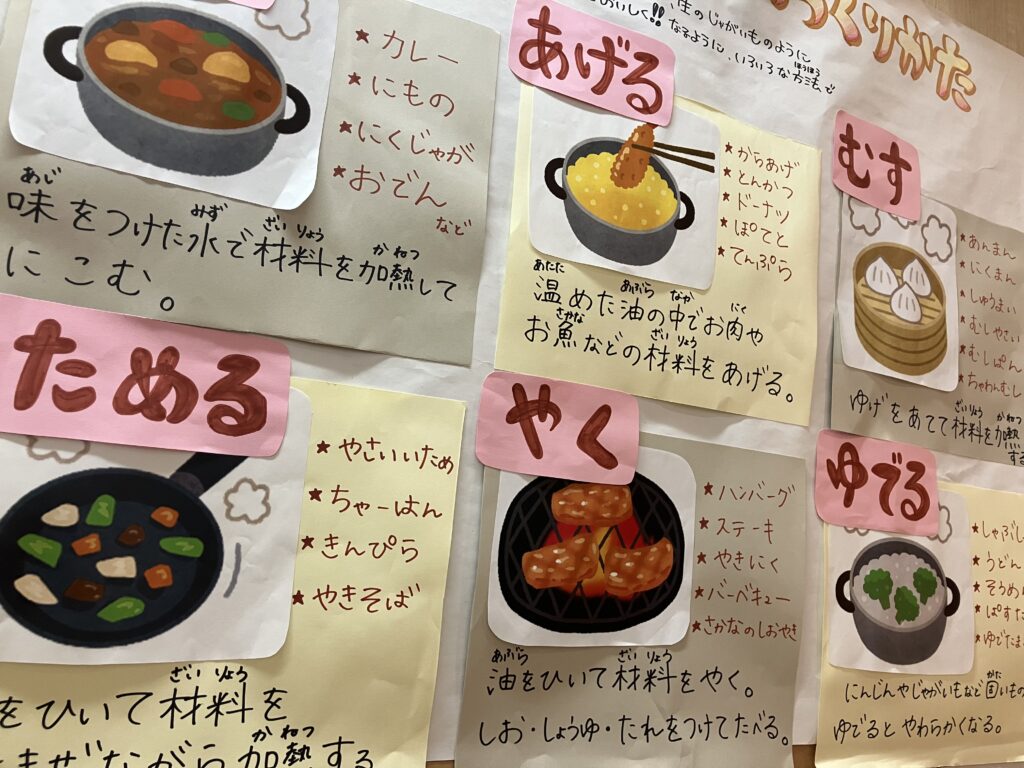 くりかた
生のじゃがいものように
おいしく!!なるように、いろいろな方法で
ほうほう
★カレー
★にもの
★にくじゃが
★おでん
など
あじ みず ざいりょう かねつ
味をつけた水で材料を加熱して
にこむ。
あげる
★からあげ
★とんかつ
★ドーナツ
★ぽてと
★てんぷら
あたた あぶら なか にく
温めた油の中でお肉や
さかな ざいりょう
お魚などの材料をあげる。
むす
★あんまん
★にくまん
★しゅうまい
★むしやさい
★むしぱん
★ちゃわんむし
ざいりょう かねつ
ゆげをあてて材料を加熱
する
ためる
★やさいいため
★ちゃーはん
★きんぴら
★やきそば
ざいりょう
をひいて材料を
かねつ
まぜながら加熱する
やく
★ハンバーグ
★ステーキ
★やきにく
★バーベキュー
★さかなのしおやき
あぶら ざいりょう
油をひいて材料をやく。
しお・しょうゆ・たれをつけてたべる。
ゆでる
★しゃぶし
★うどん
★そうめ
★ぱすた
★ゆでたま
かた
にんじんやじゃがいもなど固いもの
ゆでるとやわらかくなる。